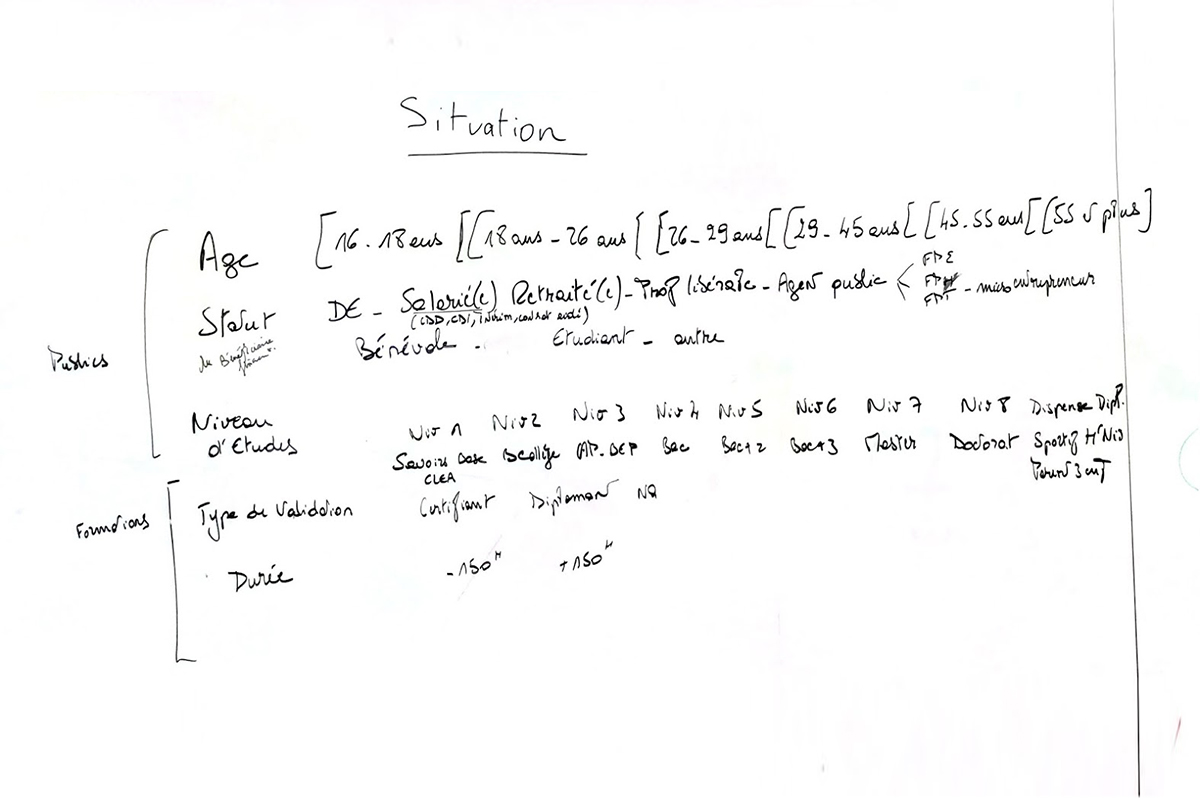 Situation
Age [16-18 ans[ [18 ans - 26 ans [ [26-29 ans[ [29-45 ans[ [45-55 ans[ [55 et plus]
Statut DE - Salarié(e) Retraité(e) - Prof libérale - Agent public < FPE FPH FPT - micro entrepreneur
(CDD, CDI, intérim, contrat aidé)
du Bénéficiaire
Bénévole - Etudiant - autre
Publics
Niveau d'Etudes
Niv 1 Niv 2 Niv 3 Niv 4 Niv 5 Niv 6 Niv 7 Niv 8 Dispense Dipl.
Savoirs Base CAP. BEP Bac Bac+2 Bac+3 Master Doctorat Sportif Ht Niv
CLEA Parent 3 enf
Formations
Type de Validation Certifiant Diplomant NQ
Durée -150H +150H